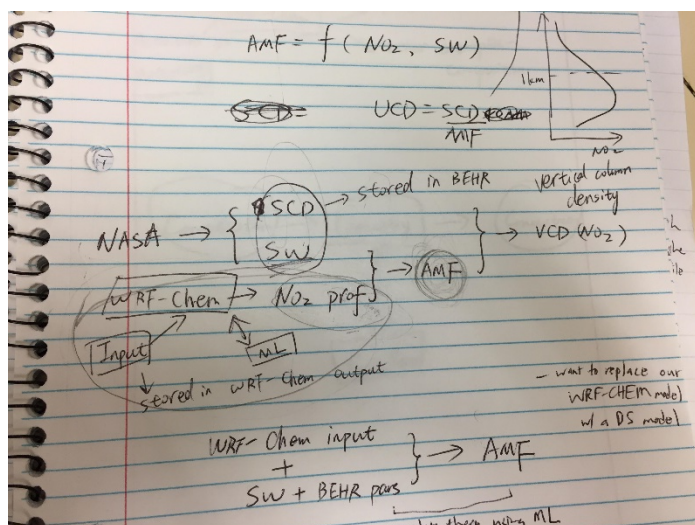 AMF = f ( NO2, SW )
1km
SCD =
VCD = SCD
AMF
NO2
vertical column
density
→ stored in BEHR
NASA → { SCD
SW
} → VCD (NO2)
WRF-Chem → NO2 prof } → AMF
Input
ML
stored in WRF-Chem output
- want to replace our
WRF-CHEM model
w/ a DS model
WRF-Chem input
+
SW + BEHR pars
} → AMF
using ML